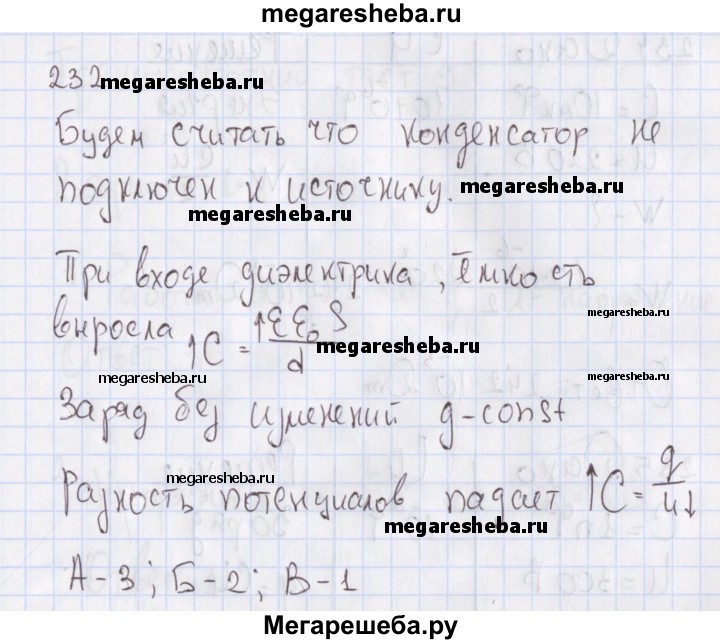 megaresheba.ru
232 megaresheba.ru
Будем считать что конденсатор не
подключен к источнику. megaresheba.ru
megaresheba.ru
При входе диэлектрика, ёмкость
megaresheba.ru
выросла ↑C = ↑εε₀S / d megaresheba.ru
megaresheba.ru
megaresheba.ru
Заряд без изменений q-const
megaresheba.ru
Разность потенциалов падает ↑C = q / u↓
megaresheba.ru
А-3; Б-2; В-1
Мегарешеба.ру